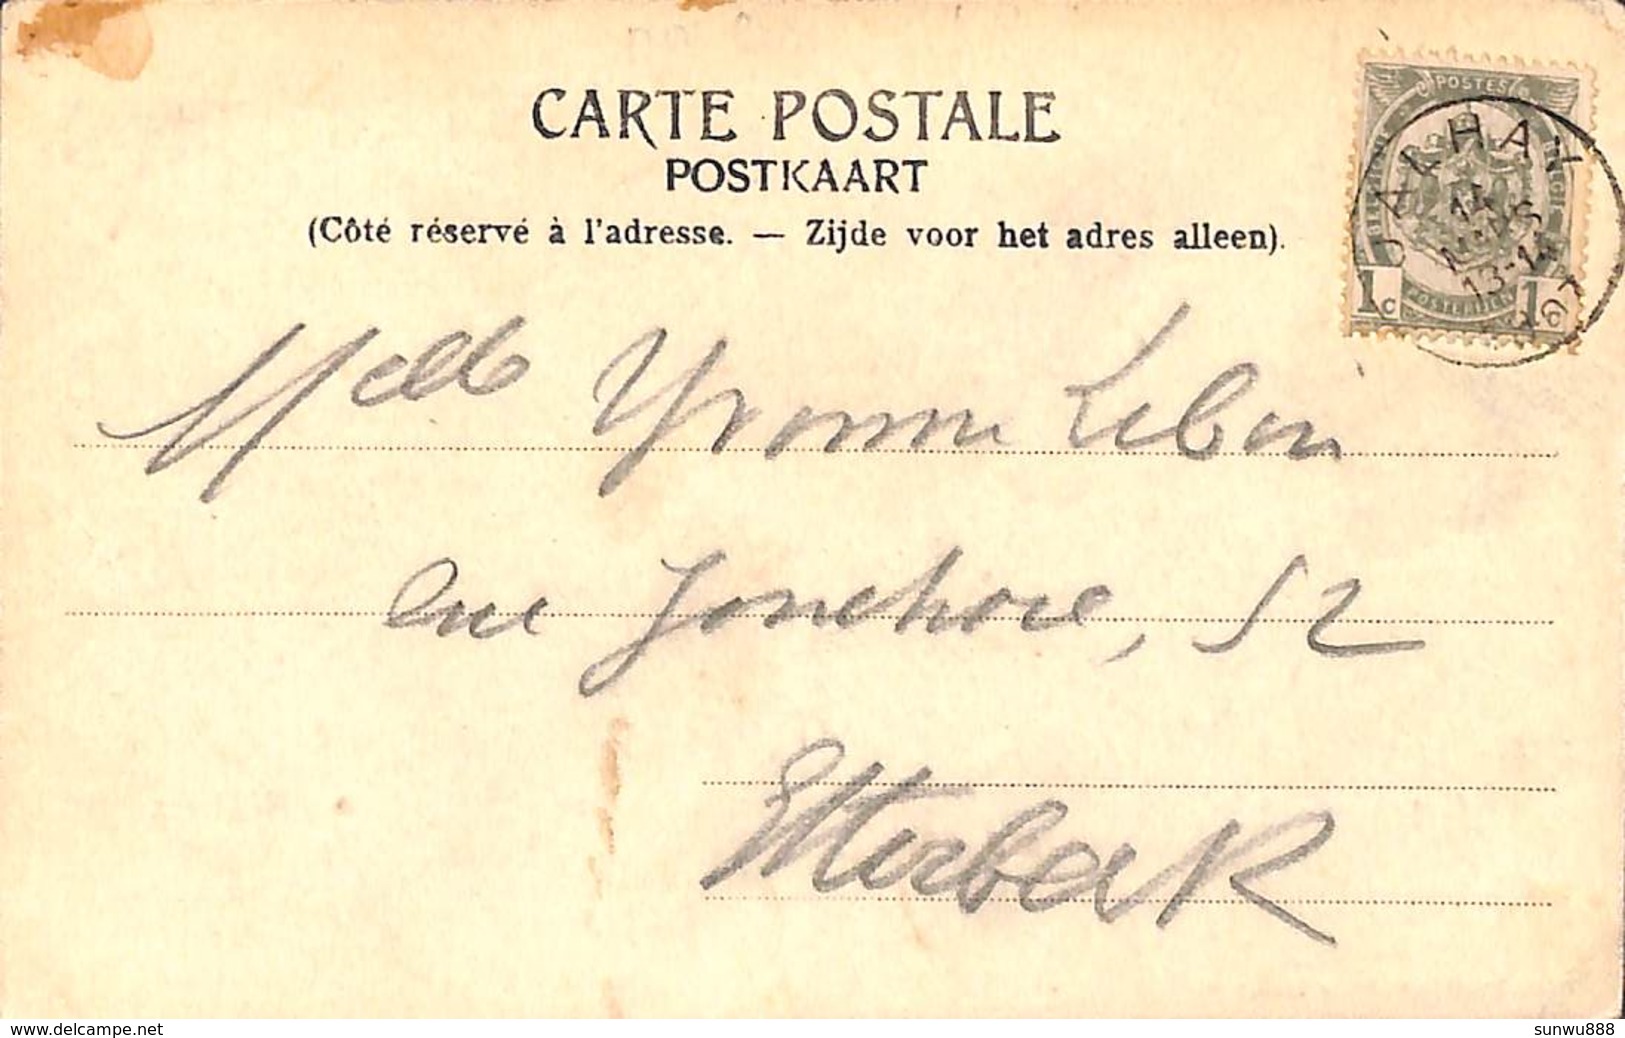 CARTE POSTALE
POSTKAART
(Côté réservé à l'adresse. — Zijde voor het adres alleen).
POSTES
JAKHAL
14
MARS
13-14
1907
1c 1c
POSTERIJEN
Melle Yvonne Lebon
rue Jonchère, 52
Etterbeek
www.delcampe.net
sunwu888